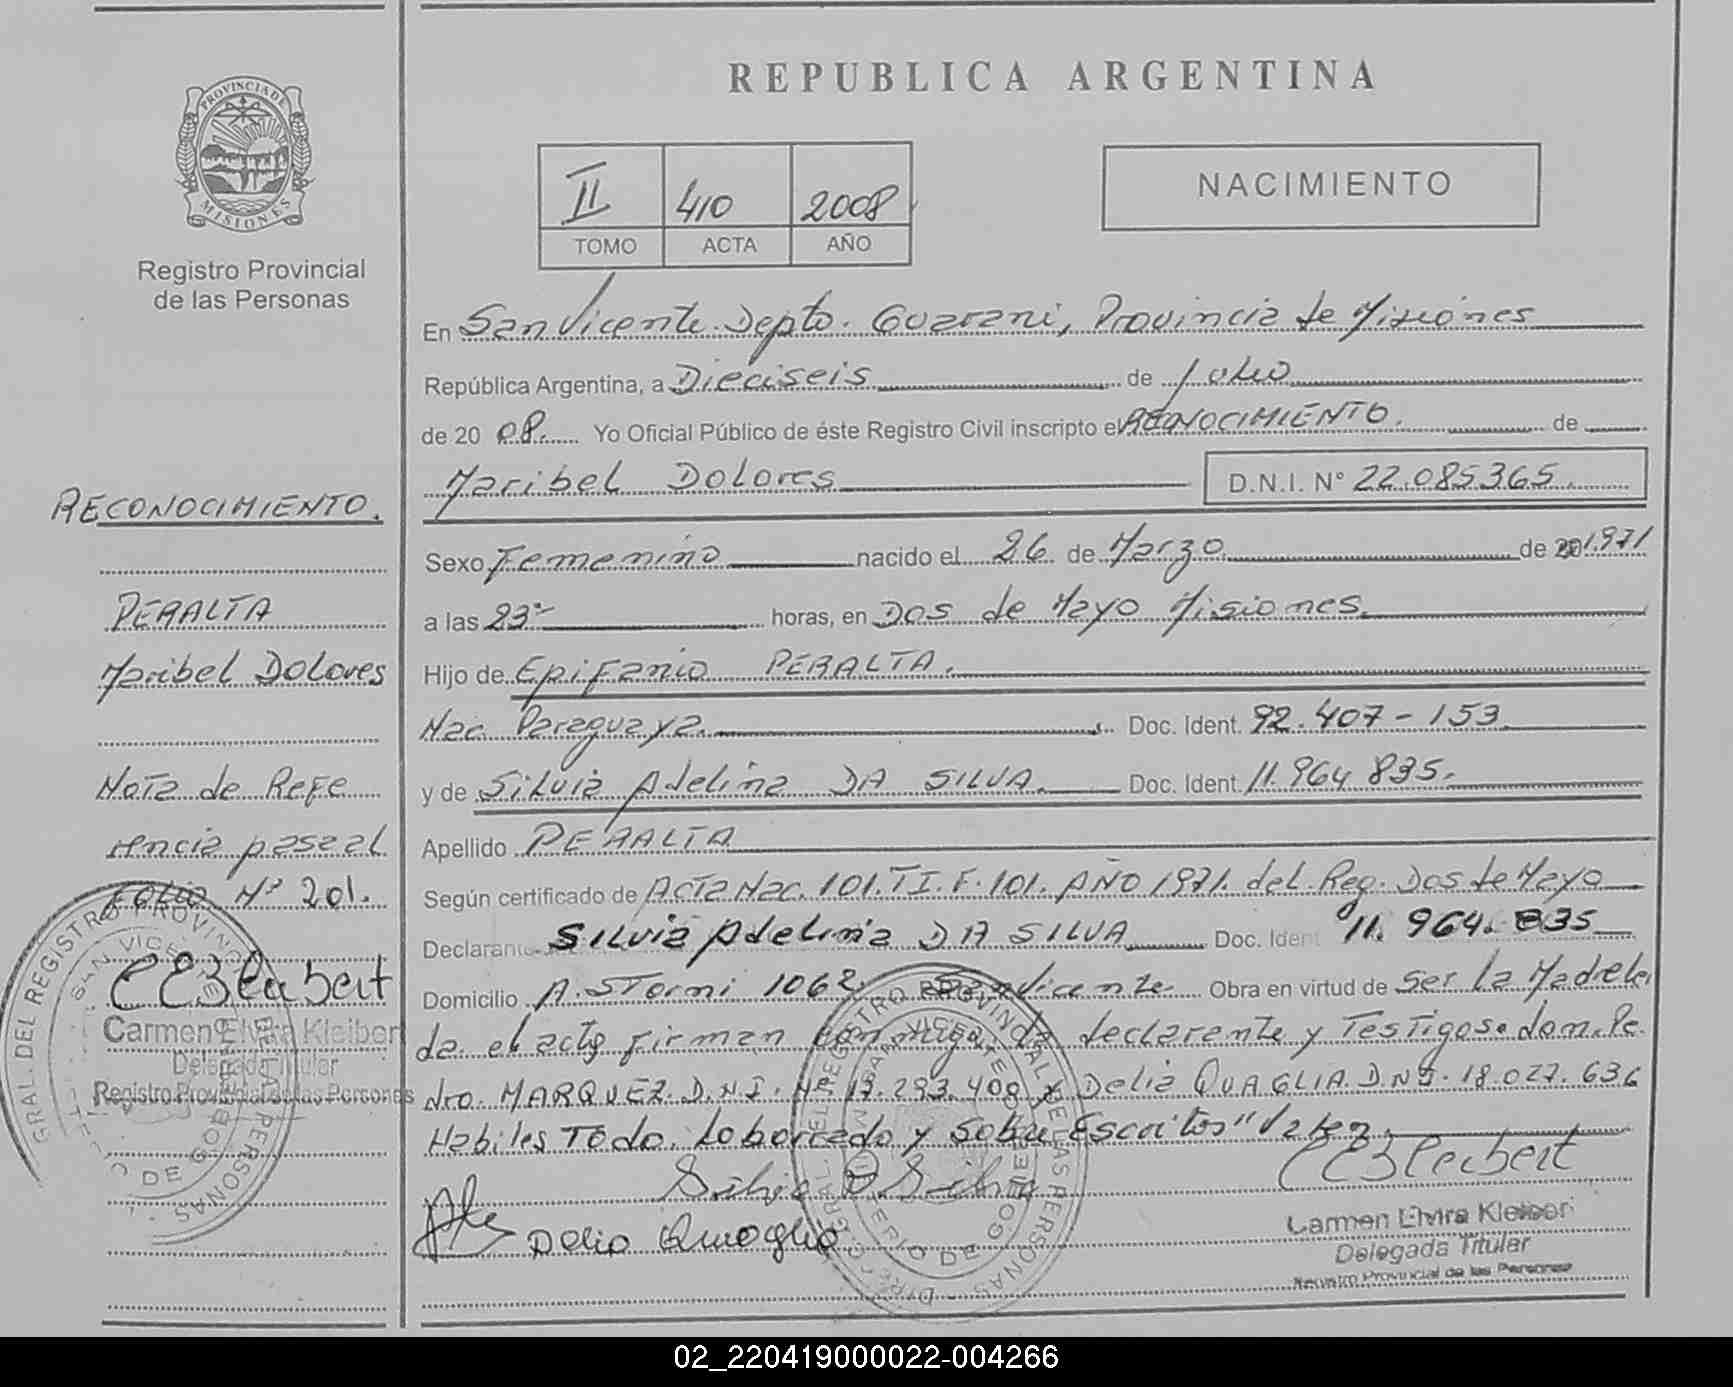 PROVINCIA DE
MISIONES
Registro Provincial
de las Personas
RECONOCIMIENTO.
PERALTA
Maribel Dolores
Nota de Refe
rencia pasa al
Folio Nº 201.
Carmen Elvira Kleiber
Delegada Titular
Registro Provincial de las Personas
REPUBLICA ARGENTINA
II 410 2008
TOMO ACTA AÑO
NACIMIENTO
En San Vicente. Depto. Guarani, Provincia de Misiones
República Argentina, a Dieciseis de Julio
de 20 08. Yo Oficial Público de éste Registro Civil inscripto el RECONOCIMIENTO. de
Maribel Dolores D.N.I. N° 22.085365
Sexo Femenino nacido el 26 de Marzo de 20 1971
a las 23 horas, en Dos de Mayo Misiones.
Hijo de Epifanio PERALTA.
Nac. Paraguaya. Doc. Ident. 92.407-153
y de Silvia Adelina DA SILVA. Doc. Ident. 11.964 835.
Apellido PERALTA
Según certificado de Acta Nac. 101. T I. F. 101. AÑO 1971. del Reg. Dos de Mayo
Declarante Silvia Adelina DA SILVA Doc. Ident 11.964.835
Domicilio A. Storni 1062. San Vicente Obra en virtud de Ser la Madre. Lei
da el acta firman conmigo la declarente y Testigos. don. Pe
dro. MARQUEZ. D.N.I. Nº 13.293.408 y Delia QUAGLIA. D.N.I. 18.027.636
Habiles Todo. Lo borrado y sobre Escritos "Valen.
Silvia D Silva
Delia Quaglia
Carmen Elvira Kleiber
Delegada Titular
Registro Provincial de las Personas
02_220419000022-004266